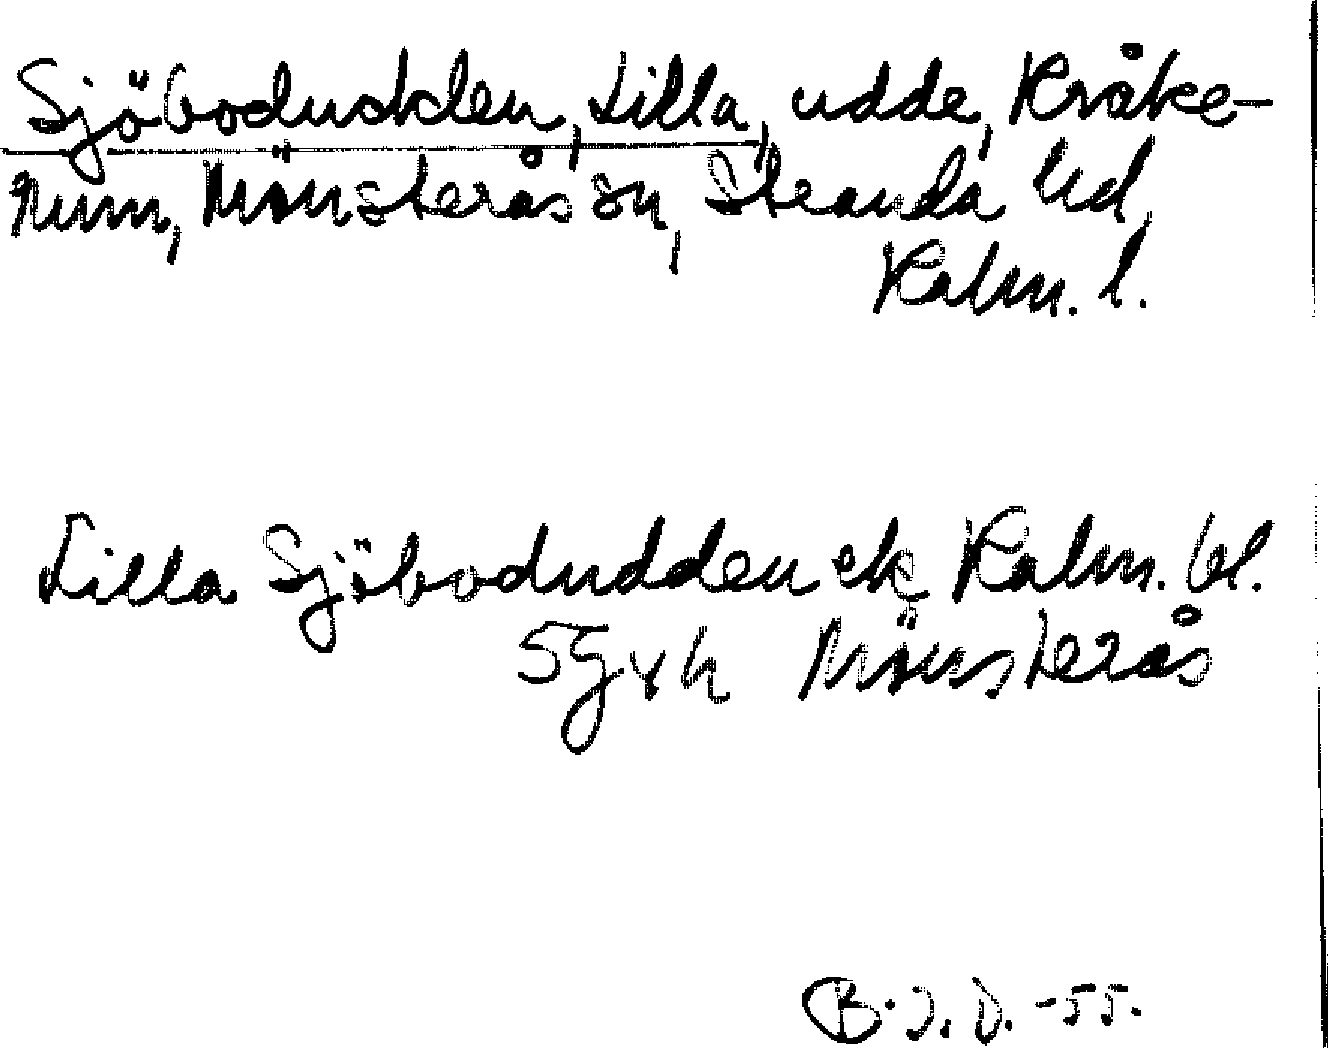 Sjöbodudden, Lilla, udde, Kråke-
rum, Mönsterås sn, Stranda hd,
Kalm. l.
Lilla Sjöbodudden ek Kalm. bl.
5G x h Mönsterås
B.J.D. -55.